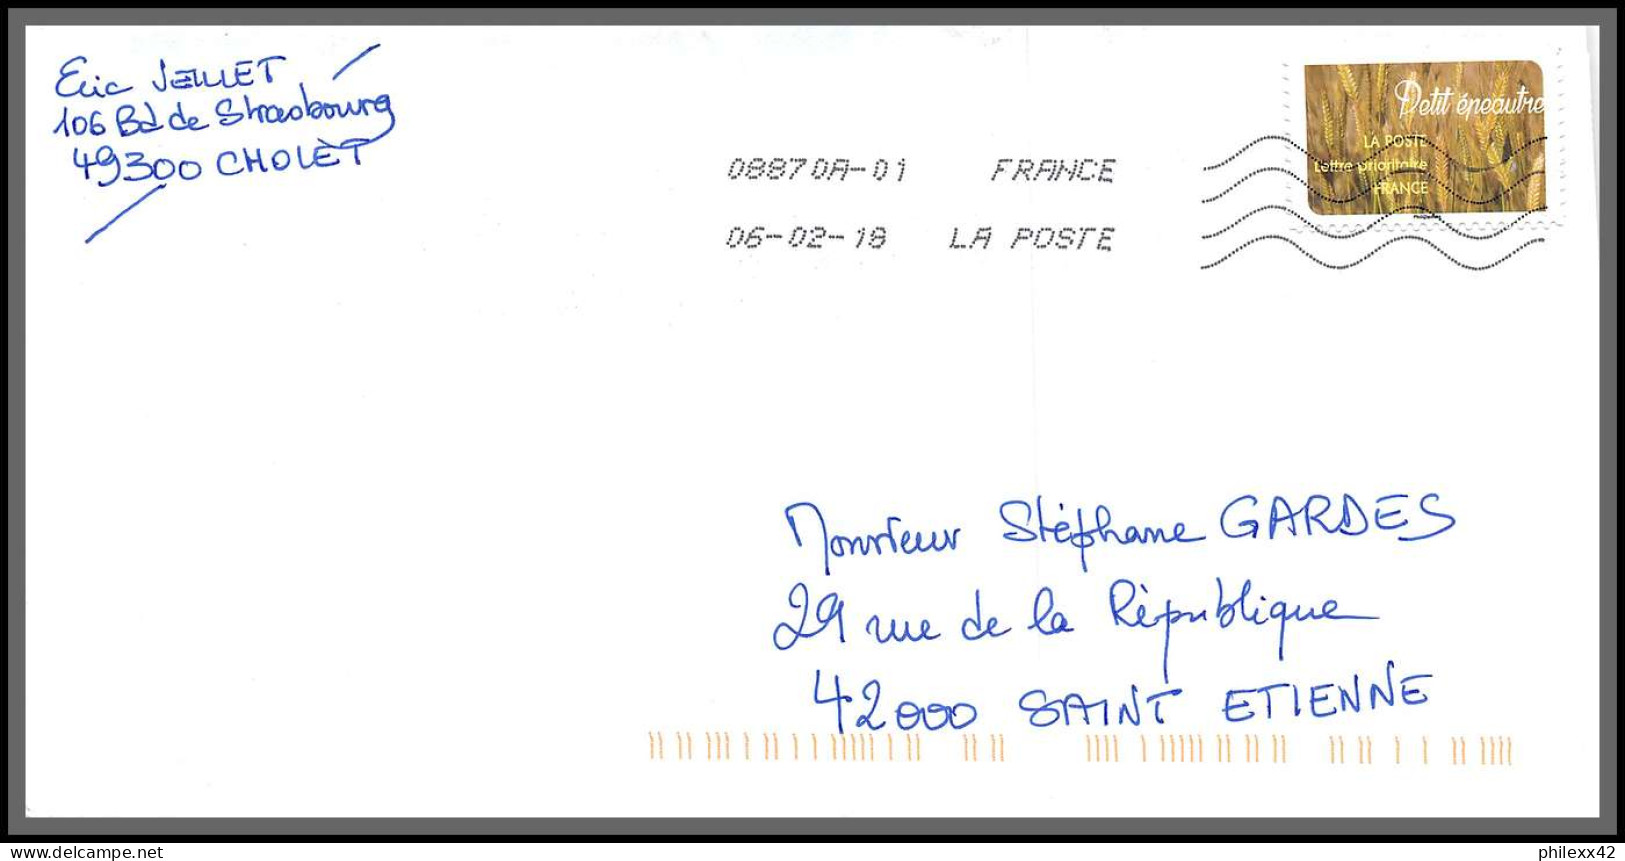 Eric JEILLET
106 Bd de Strasbourg
49300 CHOLET
08870A-01 FRANCE
06-02-18 LA POSTE
Petit épeautre
LA POSTE
Lettre prioritaire
FRANCE
Monsieur Stéphane GARDES
29 rue de la République
42000 SAINT ETIENNE
www.delcampe.net
philexx42